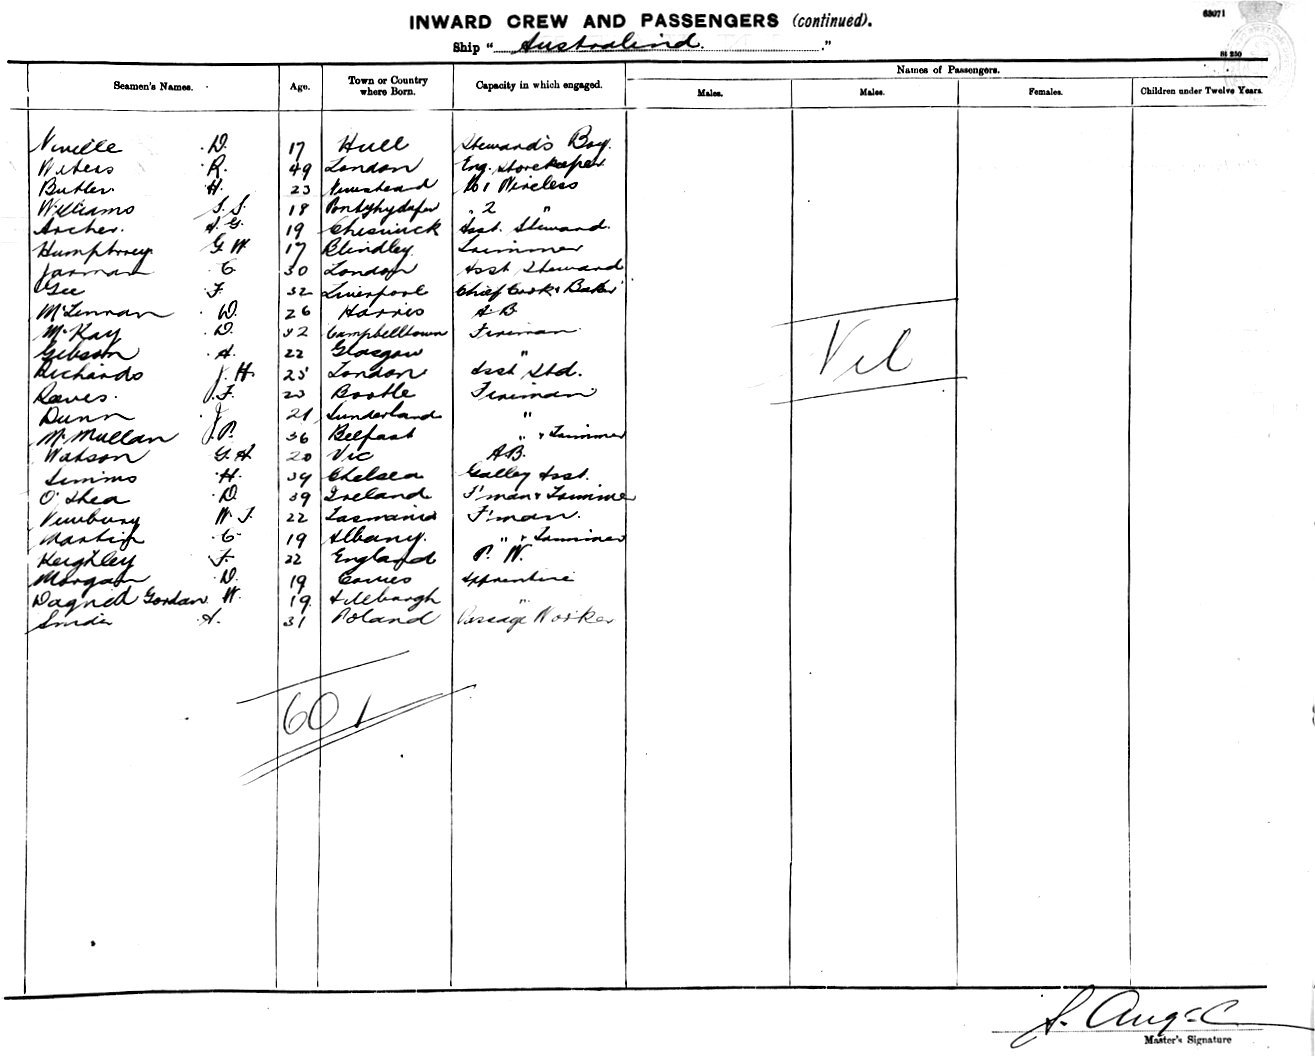 INWARD CREW AND PASSENGERS (continued).
63071
Ship "Australind."
St 250
Seamen's Names. Age. Town or Country where Born. Capacity in which engaged. Names of Passengers.
Males. Males. Females. Children under Twelve Years.
Neville D. 17 Hull Steward's Boy.
R. 49 London Eng. Storekeeper
Butler H. 23 No 1 Wireless
Williams 18 " 2 "
Archer. A. G. 19 Chiswick Asst. Steward.
Humphrey G W 17 Blindley Trimmer
Jarman C. 30 London Asst Steward
Gee F. 32 Liverpool Chief Cook & Baker
McLennan D. 26 Harris A B
McKay D. 32 Campbelltown Fireman
Gibson A. 22 Glasgow "
Richards J. H. 25 London Asst Std.
Reeves. J. F. 23 Bootle Fireman
Dunn J 21 Sunderland "
McMullan J. P. 36 Belfast " & Trimmer
Watson G. H. 20 Vic A B.
Simms H. 34 Chelsea Galley Asst.
O'Shea D. 39 Ireland F'man & Trimmer
Newbury W. J. 22 Tasmania F'man.
Martin C. 19 Albany. " & Trimmer
Keighley F. 22 England P. W.
Morgan D. 19 Apprentice
Gordan W. 19 "
A. 31 Poland Passage Worker
Nil
601
S. Angel
Master's Signature